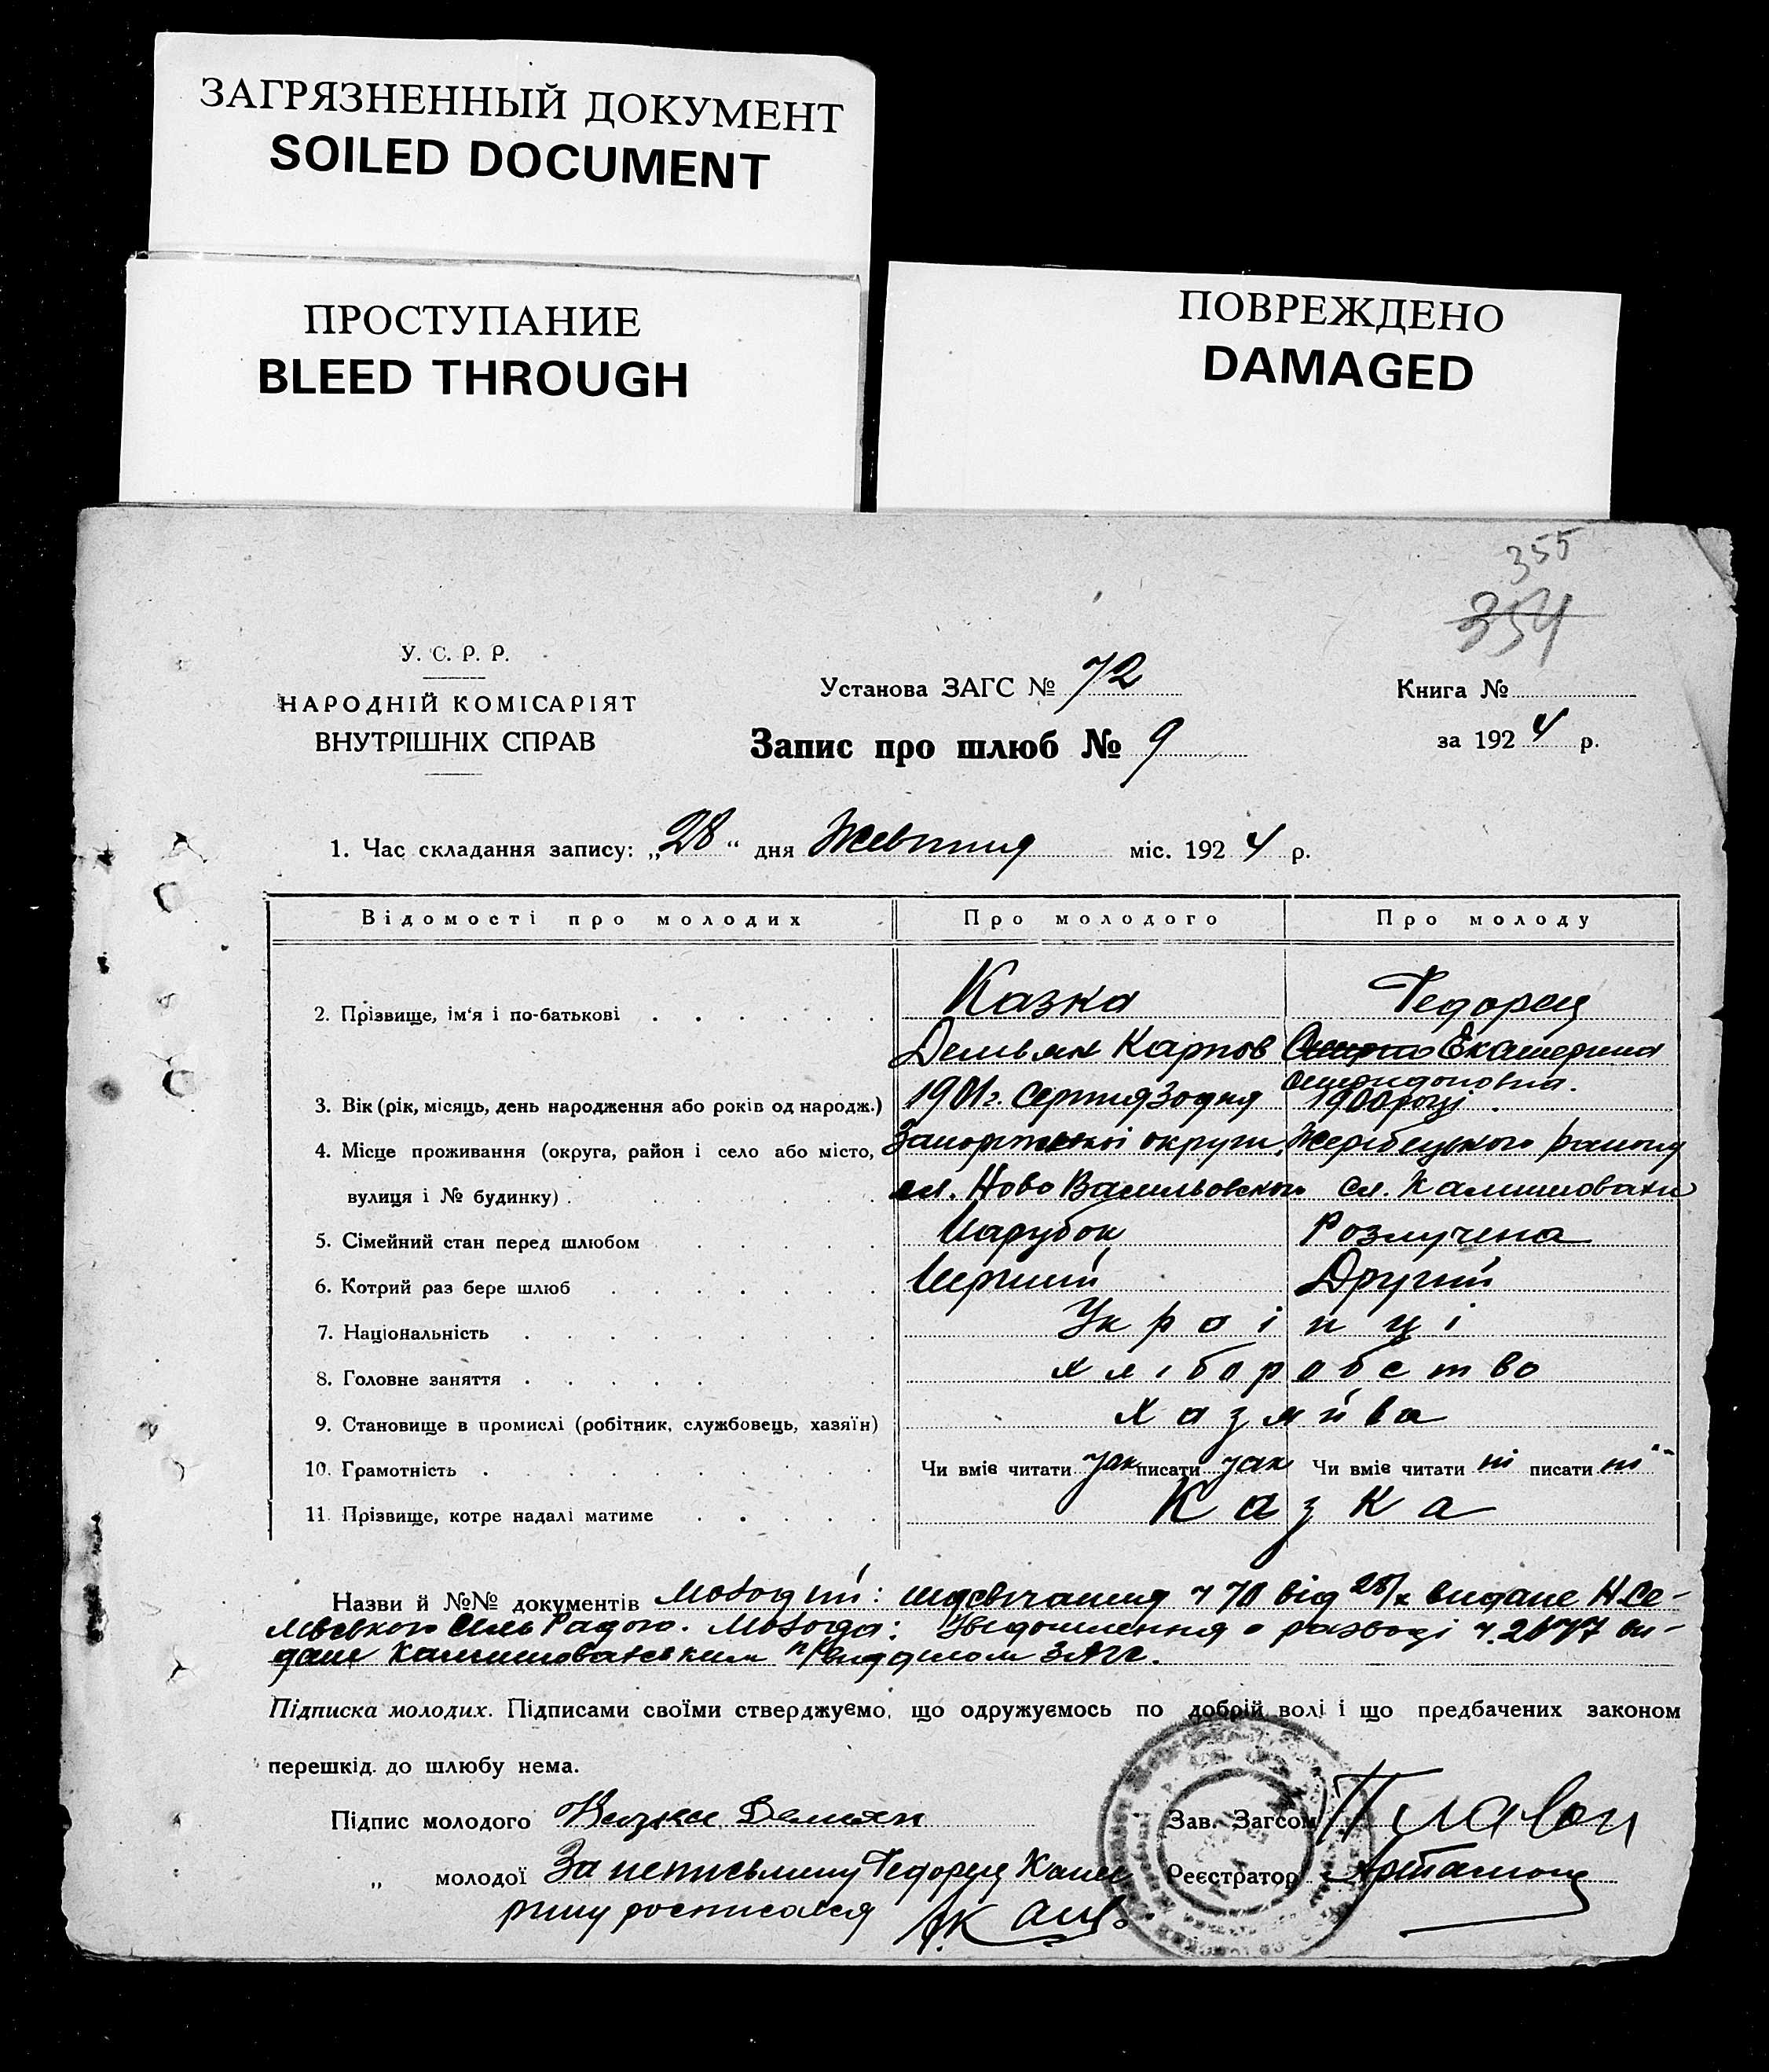 ЗАГРЯЗНЕННЫЙ ДОКУМЕНТ
SOILED DOCUMENT
ПРОСТУПАНИЕ
BLEED THROUGH
ПОВРЕЖДЕНО
DAMAGED
355
354
У. С. Р. Р.
НАРОДНІЙ КОМІСАРІЯТ
ВНУТРІШНІХ СПРАВ
Установа ЗАГС № 72
Запис про шлюб № 9
Книга №
за 1924 р.
1. Час складання запису: „28“ дня Жевтня міс. 1924 р.
Відомості про молодих Про молодого Про молоду
2. Прізвище, ім'я і по-батькові Казка Федорец
Демьян Карпов Екатерина
Спиридоновна.
3. Вік (рік, місяць, день народження або років од народж.) 1901г. Серпня 3 одня 1900 році
4. Місце проживання (округа, район і село або місто, Запоржської округи, Жеребецького району
вулиця і № будинку) сл. Ново Васильовської сл. Камишовахи
5. Сімейний стан перед шлюбом Парубок Розлучена
6. Котрий раз бере шлюб Перший Другий
7. Національність Українці
8. Головне заняття хліборобство
9. Становище в промислі (робітник, службовець, хазяїн) Хазяйва
10. Грамотність Чи вміє читати так писати так Чи вміє читати ні писати ні
11. Прізвище, котре надалі матиме Казка
Назви й №№ документів Молодий: посвічання ч 70 від 28/х видане Н.Се-
лівського Сель Радою. Молода: Увідомлення о разводі ви-
дане Камишоватським ЗАГС.
Підписка молодих. Підписами своїми стверджуємо, що одружуємось по добрій волі і що предбачених законом
перешкід до шлюбу нема.
Підпис молодого Казка Демян
Зав. Загсом
„ молодої За неписьмину Федорец Кате
Реєстратор Артамон
рину росписався